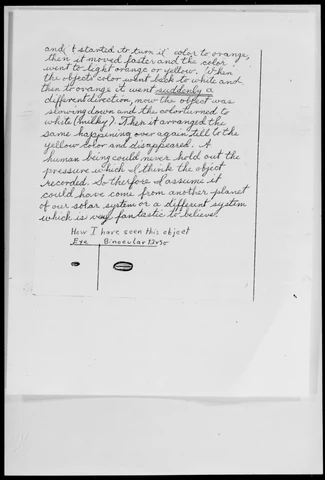 and it started to turn it' color to orange,
then it moved faster and the color
went to light orange or yellow. When
the objects color went back to white and
then to orange it went suddenly a
different direction, now the object was
slowing down and the color turned to
white (milky). Then it arranged the
same happening over again till to the
yellow color and disappeared. A
human being could never hold out the
pressure which I think the object
recorded. So therefore I assume it
could have come from another planet
of our solar system or a different system
which is very fantastic to believe.
How I have seen this object
Eye Binocular 12x50